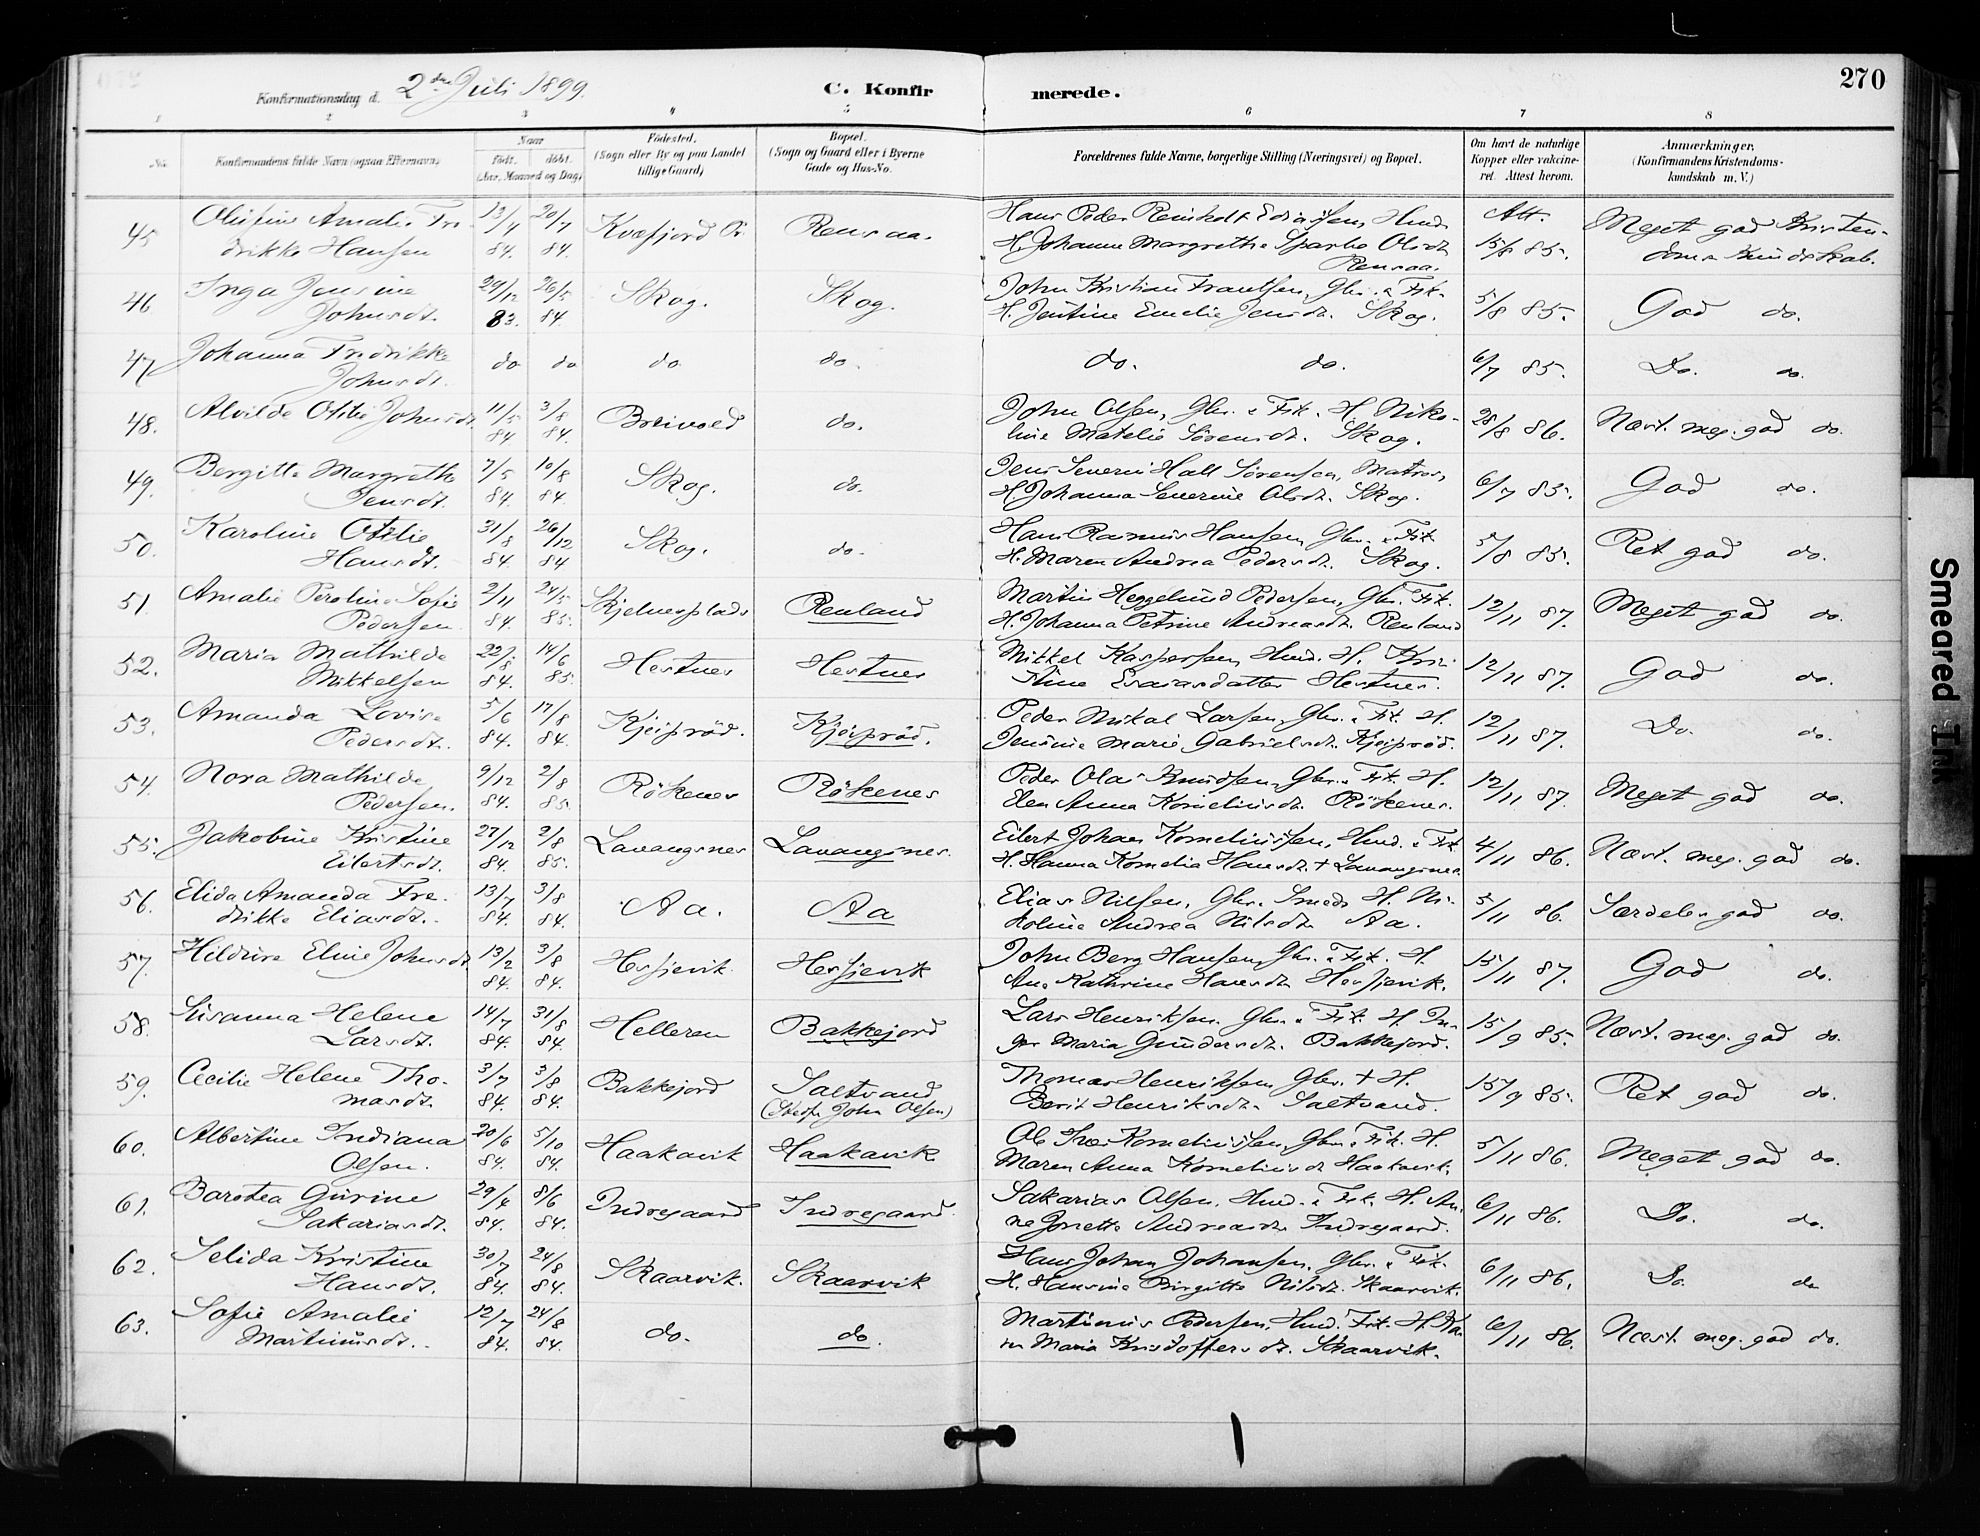 270
Konfirmationsdag d. 2den Juli 1899.
C. Konfirmerede.
1 2 3 4 5 6 7 8
No. Konfirmandens fulde Navn (ogsaa Efternavn) Naar født. døbt. (Aar, Maaned og Dag) Fødested. (Sogn eller By og paa Landet tillige Gaard) Bopæl. (Sogn og Gaard eller i Byerne Gade og Hus-No. Forældrenes fulde Navne, borgerlige Stilling (Næringsvei) og Bopæl. Om havt de naturlige Kopper eller vakcineret. Attest herom. Anmærkninger. (Konfirmandens Kristendomskundskab m. V.)
45 Amalie Fredrikke Hansen 13/4 84. 20/7 84. Kvæfjord Rensaa. Hans Peder Hmd. H. Johanna Margrethe Olsdt Rensaa. Att. 15/8 85. Meget god Kristendoms Kundskab.
46 Inga Jensine Johnsdt. 29/12 83. 26/5 84. Skog. Skog. John Kristian Frantsen, Gbr. & Fisk. H. Jentine Emelie Jensdt. Skog. 5/8 85. God do.
47 Johanna Fredrikke Johnsdt. do do do do. do. do. 6/7 85. Do. do.
48. Alvilde Otilie Johnsdt. 11/5 84 3/8 84. Breivold do. John Olsen, Gbr. & Fisk. H. Nikoline Matelie Sørensdt. Skog. 28/8 86. Næst. meg. god do.
49. Bergitte Margrethe Jensdt. 7/5 84. 10/8 84. Skog. do. Jens Severin Hall Sørensen, Matros, H. Johanna Severine Olsdt. Skog. 6/7 85. God do.
50. Karoline Otelie Hansdt. 31/8 84. 26/12 84 Skog. do. Hans Rasmus Hansen, Gbr. & Fisk H. Maren Andrea Pedersdt. Skog. 5/8 85. Ret god do.
51. Amalie Peroline Sofie Pedersen. 2/11 84. 24/5 85. Skjelnesplads Renland Martin Heggelund Pedersen, Gbr. Fisk. H. Johanna Petrine Andreasdt. Renland 12/11 87. Meget god do.
52. Maria Mathilde Mikkelsen 22/8 84. 14/6 85 Hestnes Hestnes Mikkel Kaspersen, Hmd. H. Kristine Esaiasdatter Hestnes. 12/11 87. God do.
53. Amanda Lovise Pedersdt. 5/6 84. 17/8 84. Kjeiprød. Kjeiprød. Peder Mikal Larsen, Gbr. & Fisk. H. Jensine Marie Gabrielsdt. Kjeiprød. 12/11 87. Do. do.
54. Nora Mathilde Pedersen. 9/12 84. 2/8 85. Røkenes Røkenes Peder Olai Knudsen, Gbr. & Fisk. H. Elen Anna Korneliusdt. Røkenes. 12/11 87. Meget god do.
55. Jakobine Kristine Eilertsdt. 27/12 84. 2/8 85. Lavangsnes Lavangsnes. Eilert Johan Korneliussen, Hmd. & Fisk H. Hanna Kornelia Hansdt. + Lavangsnes. 4/11 86. Næst. meg. god do.
56. Elida Amanda Fredrikke Eliasdt. 13/7 84. 3/8 84. Aa. Aa Elias Nilsen, Gbr. Smed. H. Nikoline Andrea Nilsdt. Aa. 5/11 86. Særdeles god do.
57. Eline Johnsdt. 13/2 84. 3/8 84. Hessjevik Hessjevik John Berg Hansen, Gbr. & Fisk. H. Ane Kathrine Hansdt. Hessjevik. 15/11 87. God do.
58. Susanna Helene Larsdt. 14/7 84. 31/8 84. Helleren Bakkejord Lars Henriksen. Gbr. & Fisk. H. Inger Maria Gundersdt. Bakkejord. 15/9 85. Næst. meg. god do.
59. Cecilie Helene Thomasdt. 3/7 84. 3/8 84. Bakkejord Saltvand (Stedf. John Olsen) Thomas Henriksen, Gbr. + H. Berit Henriksdt. Saltvand. 15/9 85. Ret god do.
60. Albertine Indiana Olsen. 20/6 84. 5/10 84. Haakavik Haakavik Ole Korneliussen, Gbr. & Fisk. H. Maren Anna Korneliusdt. Haakavik. 5/11 86. Meget god do.
61. Barotea Gurine Sakariasdt. 29/4 84. 8/6 84. Indregaard Indregaard. Sakarias Olsen, Hmd. & Fisk. H. Anne Andreasdt. Indregaard. 6/11 86. Do. do.
62. Selida Kristine Hansdt. 30/7 84. 24/8 84. Skaarvik. Skaarvik Hans Johan Johansen, Gbr. & Fisk. H. Hansine Birgitte Nilsdt. Skaarvik. 6/11 86. Do. do
63. Sofie Amalie Martinusdt. 12/7 84. 24/8 84. do. do. Martinus Pedersen, Hmd. Fisk. H. Karen Maria Kristoffersdt. Skaarvik. 6/11 86. Næst. meg. god do.
Smeared Ink